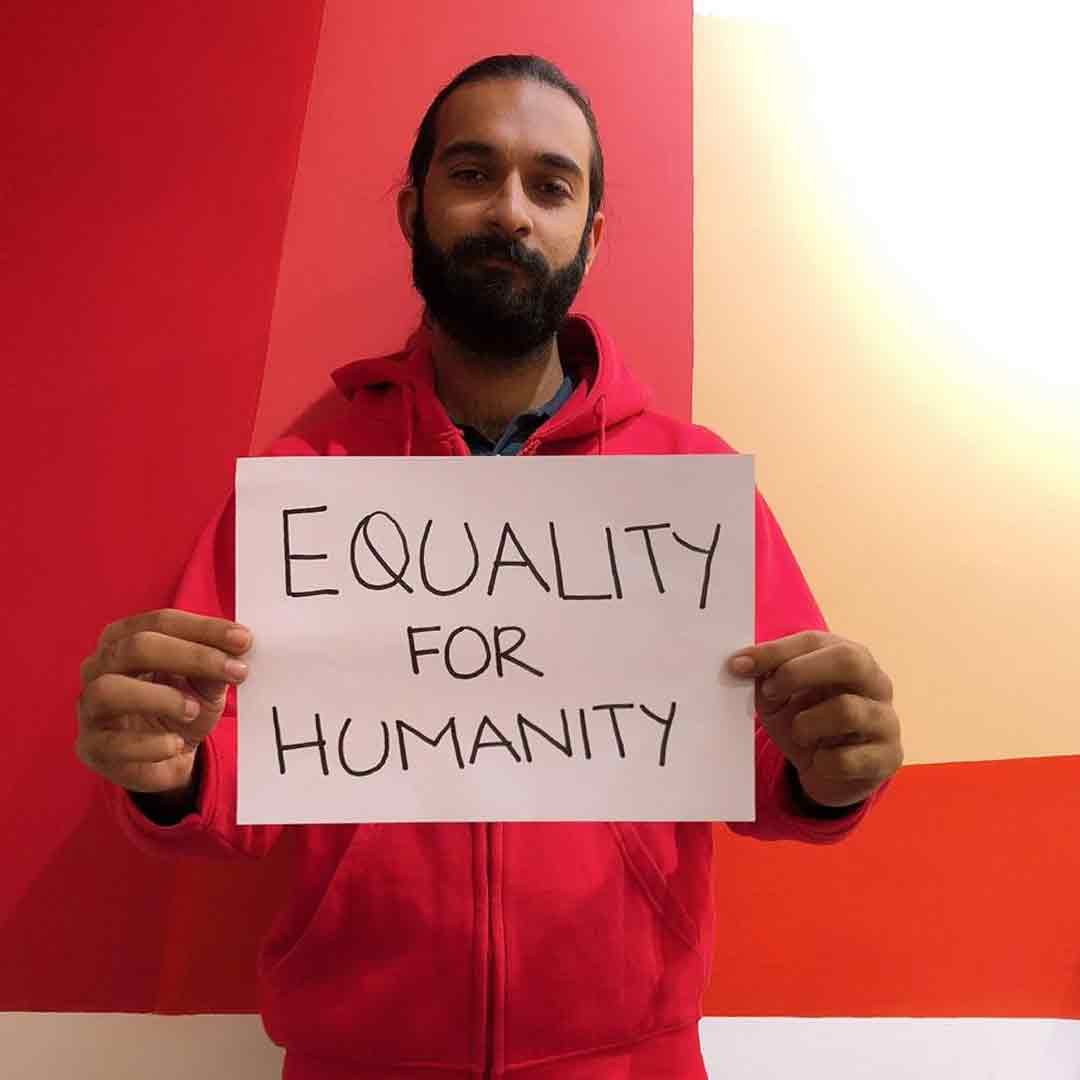 EQUALITY
FOR
HUMANITY